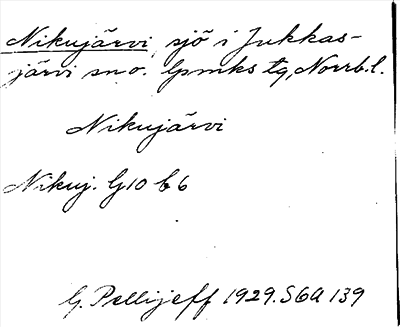 Nikujärvi, sjö i Jukkas-
järvi sno. lpmks tg, Norrb. l.
Nikujärvi
Nikuj. G10 b6
G. Pellijeff 1929. S6A 139